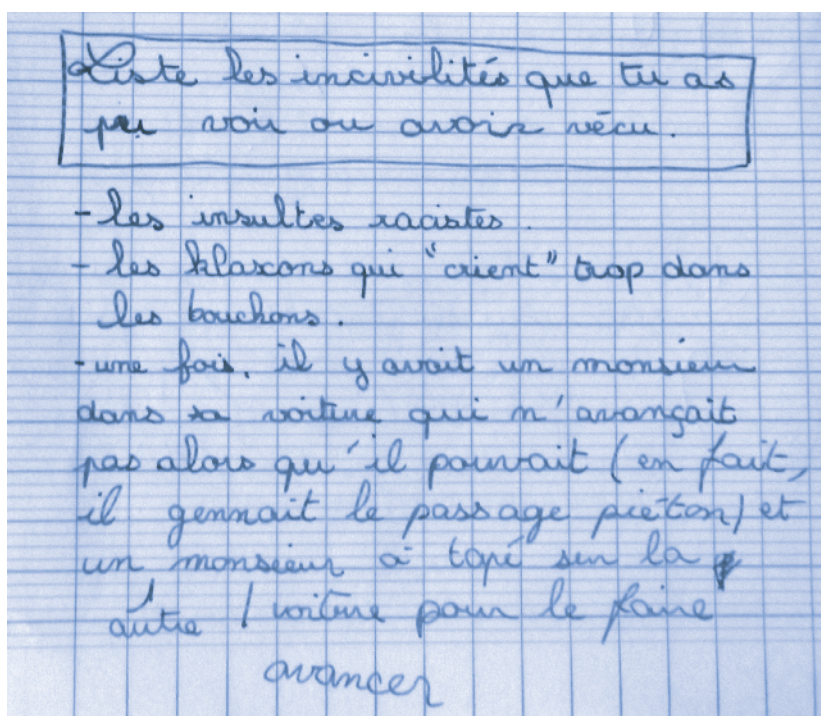 Liste les incivilités que tu as
pu voir ou avoir vécu.
- les insultes racistes.
- les klaxons qui "crient" trop dans
les bouchons.
- une fois, il y avait un monsieur
dans sa voiture qui n'avançait
pas alors qu'il pouvait (en fait,
il gennait le passage piéton) et
un monsieur à topé sur la
autre / voiture pour le faire
avancer